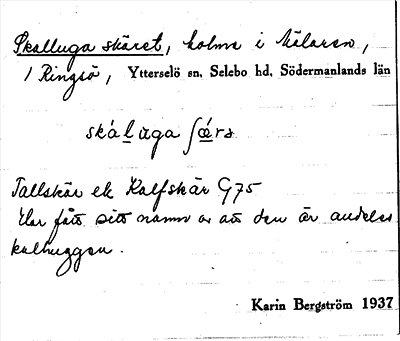 Skalluga skäret, holme i Mälaren,
/ Ringsö, Ytterselö sn, Selebo hd, Södermanlands län
skáluga ʃǽrə
Tallskär el. Kalfskär G75
Har fått sitt namn av att den är
kalhuggen.
Karin Bergström 1937